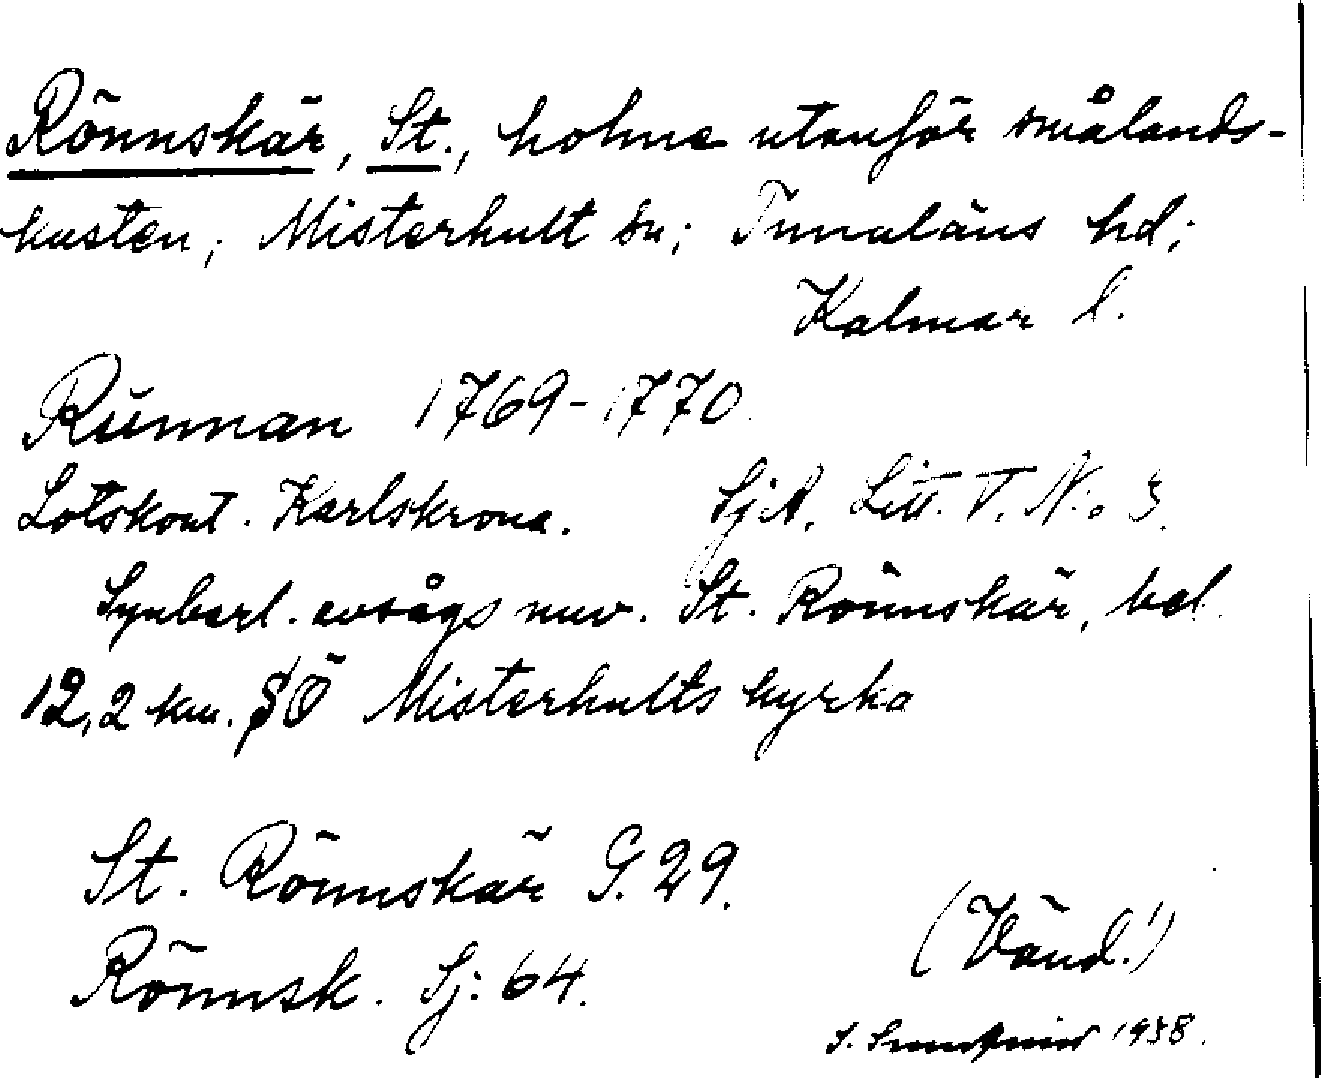 Rönnskär, St., holme utanför smålands-
kusten; Misterhult sn; Tunaläns hd;
Kalmar l.
Runnan 1769-1770.
Lotskont. Karlskrona. SjA. Litt. T. N:o 3.
Synbarl. avsågs nuv. St. Rönnskär, bel.
12,2 km. SÖ Misterhults kyrka
St. Rönnskär G. 29.
Rönnsk. Sj: 64.
(Vänd!)
S. 1938.